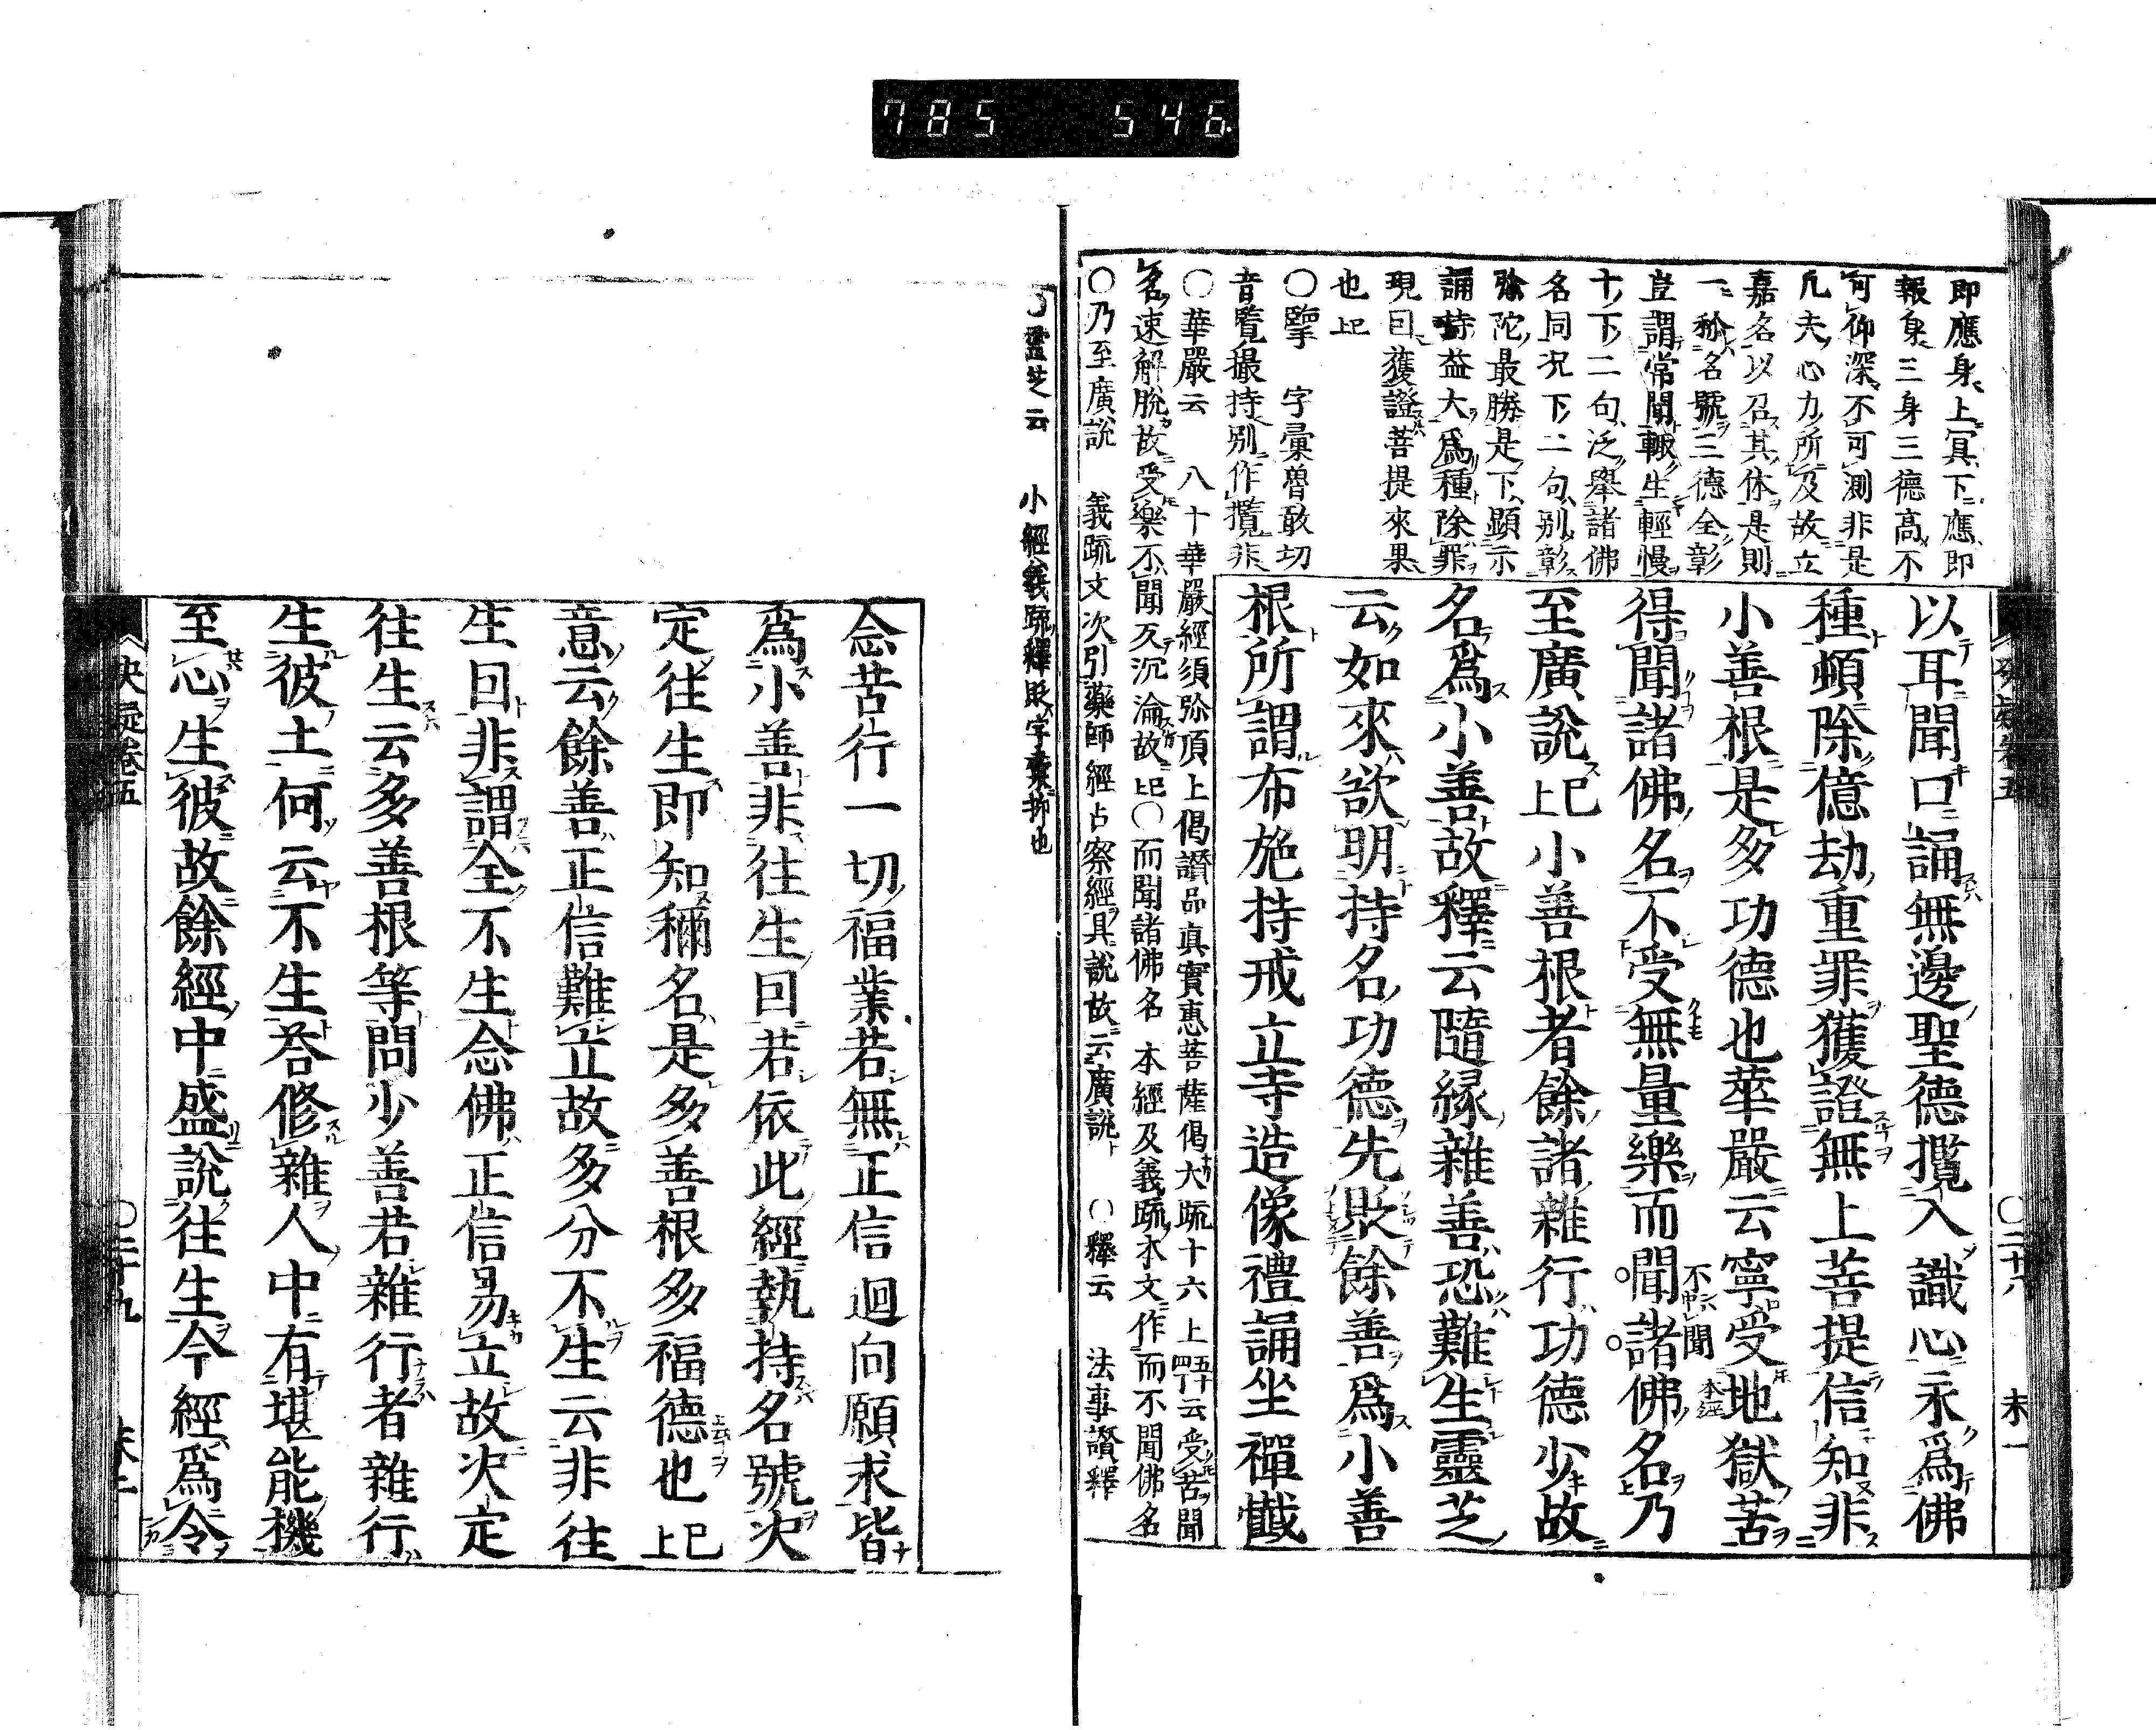 785 546
即應身上冥下應即
報身三身三德高不
可仰深不可測非是
凡夫心力所及故立
嘉名以召其体是則
一稱名號三德全彰
豈謂常聞輙生輕慢
十下二句泛舉諸佛
名同况下二句別彰
弥陀最勝是下顯示
誦持益大爲種除罪
現因獲證菩提來果
也已上
〇擥 字彙魯敢切
音覽撮持別作攬非
〇華嚴云 八十華嚴經須弥頂上偈讃品真實惠菩薩偈大疏十六上云受苦聞
名速解脫故受樂不聞久沉淪故已上〇而聞諸佛名 本經及義疏本文作而不聞佛名
〇乃至廣說 義疏文次引藥師經占察經具說故云廣說 〇釋云 法事讃釋
以耳聞口誦無邊聖德攬入識心永爲佛
種頓除億劫重罪獲證無上菩提信知非
小善根是多功德也華嚴云寧受地獄苦
得聞諸佛名不受無量樂而聞諸佛名乃
不聞 本經
至廣說已上小善根者餘諸雜行功德少故
名爲小善故釋云隨緣雜善恐難生靈芝
云如來欲明持名功德先貶餘善爲小善
根所謂布施持戒立寺造像禮誦坐禪懺
〇二十八 末一
〇靈芝云 小經義疏釋貶字彙抑也
念苦行一切福業若無正信迴向願求皆
爲小善非往生因若依此經執持名號次
定往生即知稱名是多善根多福德也已上
意云餘善正信難立故多分不生云非往
生因非謂全不生念佛正信易立故決定
往生云多善根等問少善若雜行者雜行
生彼土何云不生答修雜人中有堪能機
至心生彼故餘經中盛說往生今經爲令
決疑卷五 〇二十九